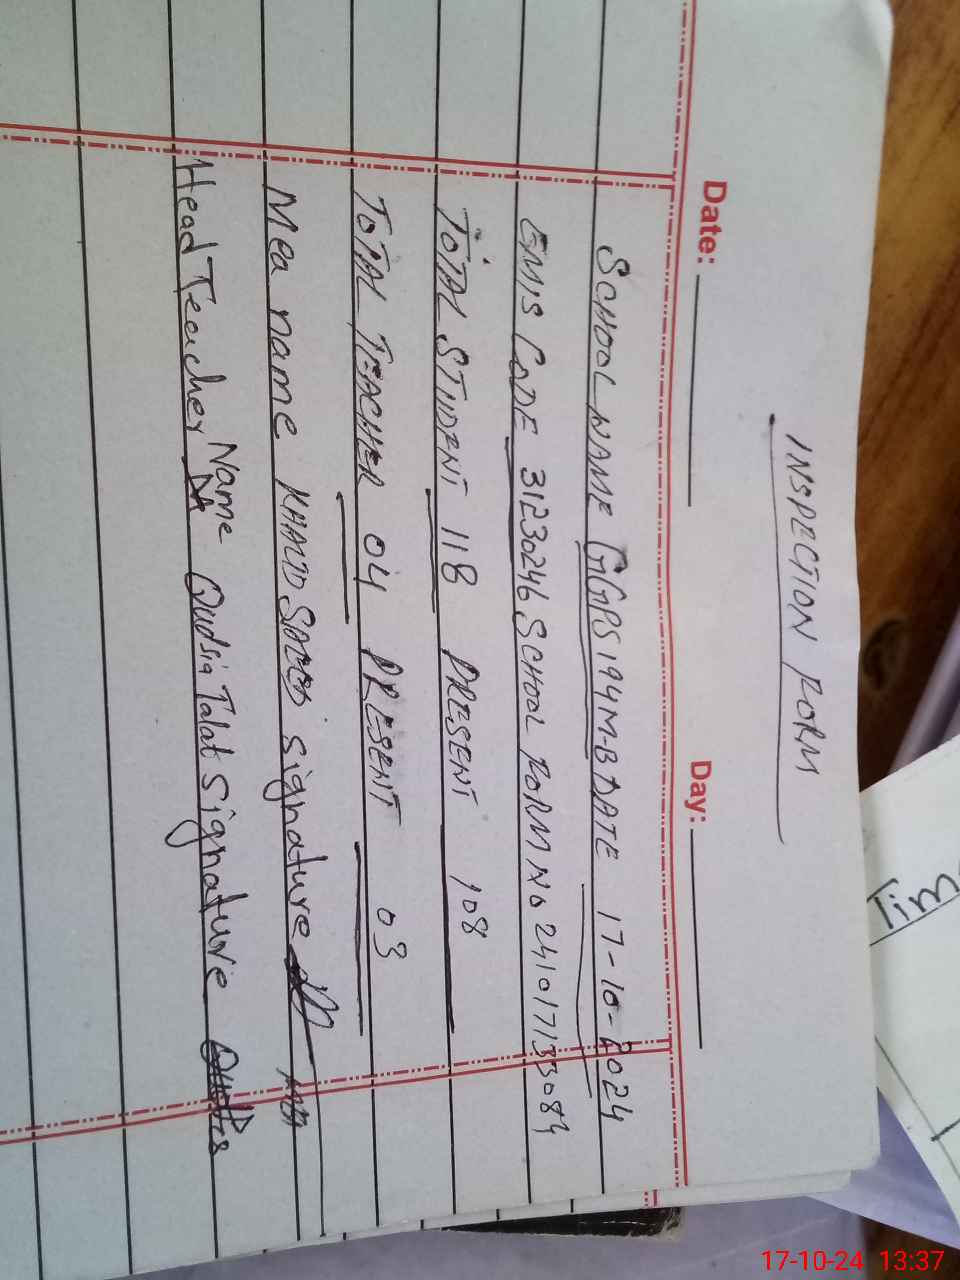 INSPECTION FORM
Date: Day:
SCHOOL NAME GGPS 194M-B DATE 17-10-2024
EMIS CODE 31230246 SCHOOL FORM No 24101713308
TOTAL STUDENT 118 PRESENT 108
TOTAL TEACHER 04 PRESENT 03
Mea name KHALID SAEED signature MEA
Head Teacher Name Qudsia Talat signature
Tim
17-10-24 13:37